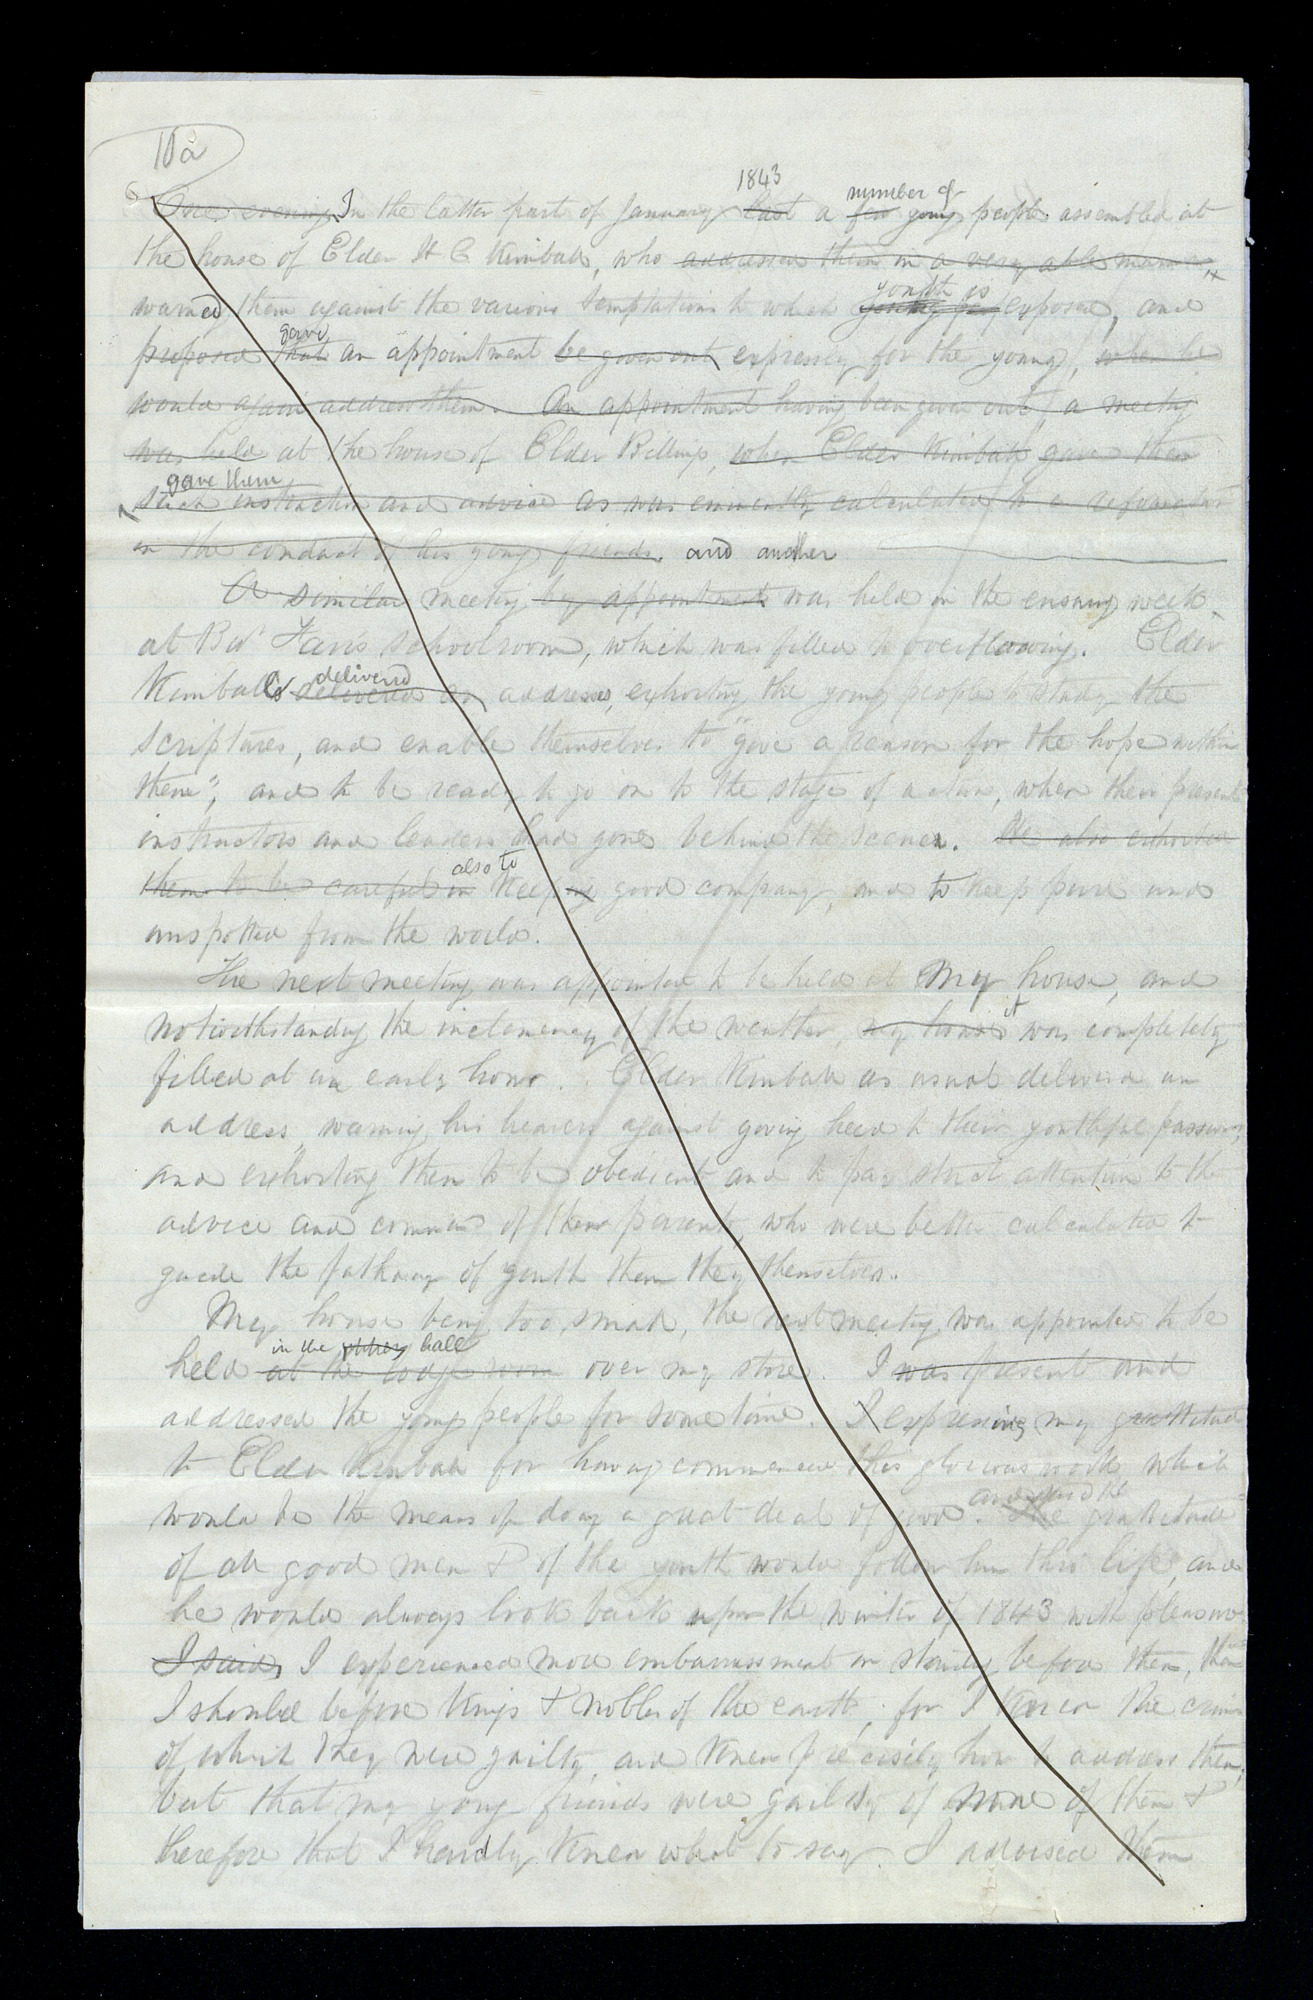 10a
1843 number of
One evening In the latter part of January last a few young people assembled at
the house of Elder H C Kimball, who addressed them in a very able manner,
youth is
warned them against the various temptations to which young exposed, and
gave
proposed that an appointment be given out expressly for the young, when he
would again address them. An appointment having been given out, a meeting
was held at the house of Elder Billings, when Elder Kimball gave them
gave them
such instruction and advice as was eminently calculated to a reformation
in the conduct of his young friends. and another
A similar meeting by appointment was held in the ensuing week
at Bro Farr's schoolroom, which was filled to overflowing. Elder
delivered
Kimball delivered an address, exhorting the young people to study the
scriptures, and enable themselves to "give a reason for the hope within
them", and to be ready to go on to the stage of action, when their present
instructors and leaders had gone behind the scenes. He also exhorted
also to
them to be careful in keeping good company, and to keep pure and
unspotted from the world.
The next meeting was appointed to be held at my house, and
it
notwithstanding the inclemency of the weather, my house was completely
filled at an early hour. Elder Kimball as usual delivered an
address, warning his hearers against giving heed to their youthful passions,
and exhorting them to be obedient and to pay strict attention to the
advice and command of their parents, who were better calculated to
guide the pathway of youth than they themselves.
My house being too small, the next meeting was appointed to be
in the hall
held at the lodge room over my store. I was present and
addressed the young people for some time. I expressing my gratitude
to Elder Kimball for having commenced this glorious work, which
and said the
would be the means of doing a great deal of good. The gratitude
of all good men & of the youth would follow him thro life, and
he would always look back upon the winter of 1843 with pleasure.
I said, I experienced more embarrassment in standing before them, than
I should before kings & nobles of the earth; for I knew the crimes
of which they were guilty, and knew precisely how to address them;
but that my young friends were guilty of none of them &
therefore that I hardly knew what to say. I advised them